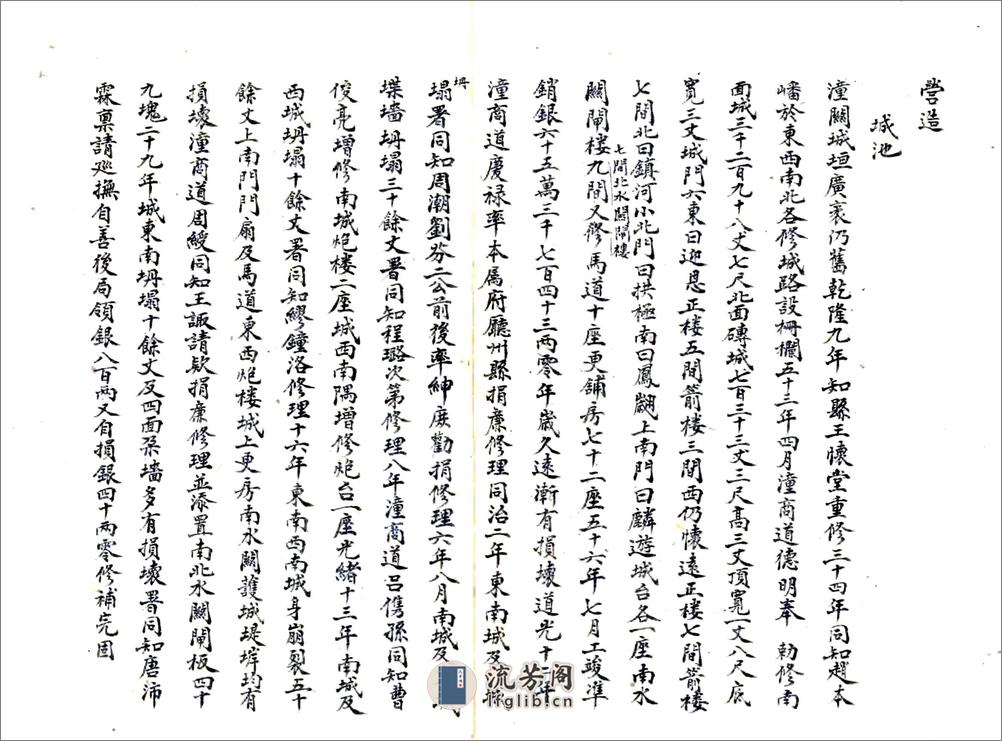 營造
城池
潼關城垣廣袤仍舊乾隆九年知縣王懷堂重修三十四年同知趙本
嶓於東西南北各修城路設柵欄五十三年四月潼商道德明奉 勅修南
面城三千二百九十八丈七尺北面磚城七百三十三丈三尺高三丈頂寬一丈八尺底
寬三丈城門六東曰迎恩正楼五間箭楼三間西仍懷遠正楼七間箭楼
七間北曰鎮河小北門曰拱極南曰鳳翽上南門曰麟遊城台各一座南水
七間北水關閘樓
關閘楼九間又修馬道十座更舖房七十二座五十六年七月工竣準
銷銀六十五萬三千七百四十三兩零年歲久遠漸有損壞道光十年
潼商道慶禄率本属府廳州縣捐亷修理同治二年東南城及
坍
塌署同知周潮劉芬二公前後率紳庻勸捐修理六年八月南城及
堞墻坍塌三十餘丈署同知程璐次第修理八年潼商道呂儁孫同知曹
俊亮增修南城炮楼二座城西南隅增修炮台一座光緒十三年南城及
西城坍塌十餘丈署同知繆鐘洛修理十六年東南西南城身崩裂五十
餘丈上南門門扇及馬道東西炮楼城上更房南水關護城堤垾均有
損壞潼商道周綬同知王諏請欵捐亷修理並添置南北水關閘板四十
九塊二十九年城東南坍塌十餘丈及四面朶墻多有損壞署同知唐沛
霖禀請廵撫自善後局領銀八百兩又自捐銀四十兩零修補完固
流芳阁
lfglib.cn